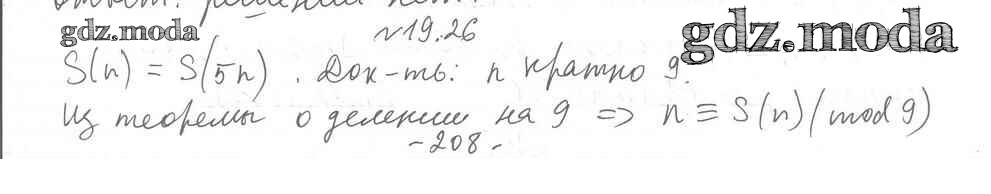 ответ: решений нет.
gdz.moda
№19.26
gdz.moda
S(n) = S(5n). Док-ть: n кратно 9.
Из теоремы о делении на 9 => n ≡ S(n) (mod 9)
- 208 -